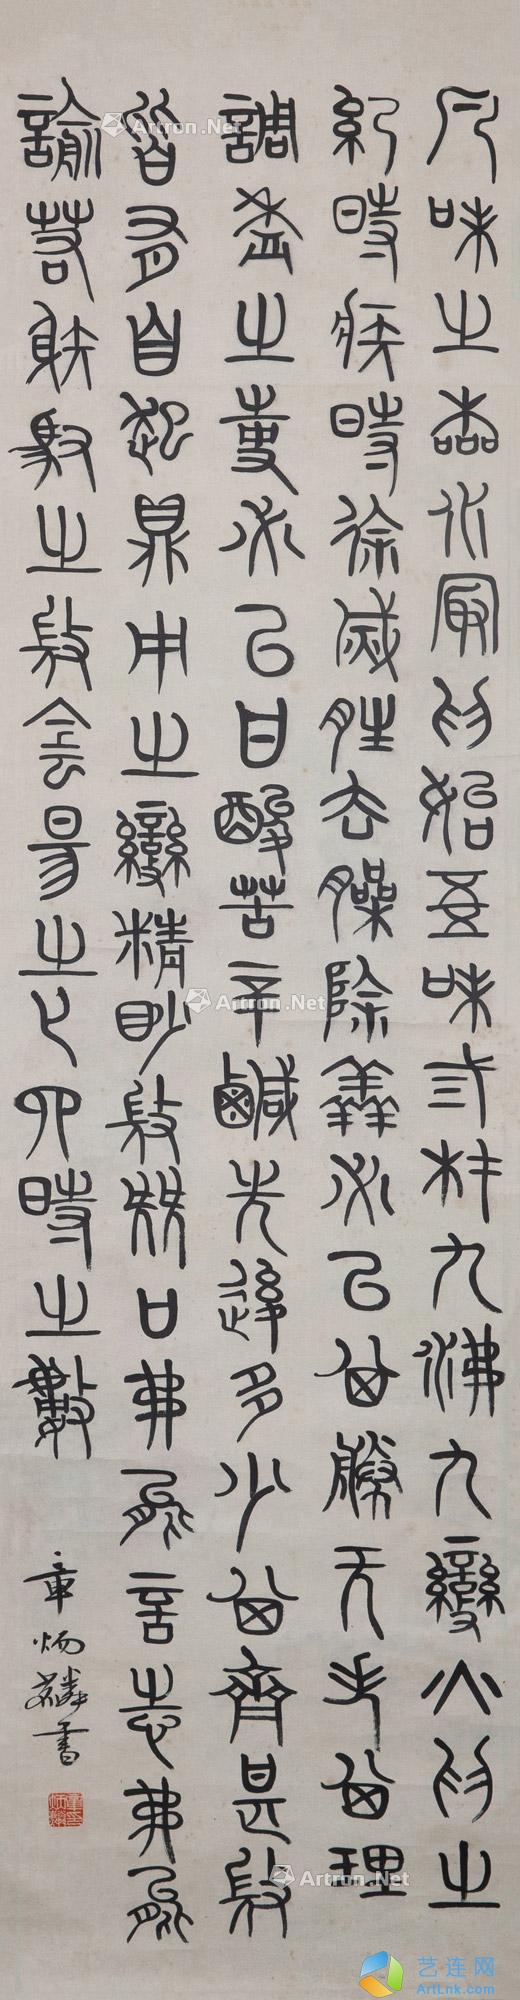 凡味之本水最為始五味弎材九沸九變火為之
紀時疾時徐滅胜去臊除羴必以其勝无失其理
調盉之事必以甘酸苦辛鹹先後多少其齊甚微
皆有自起鼎中之變精眇微韱口弗能言志弗能
諭若射馭之微侌昜之化四時之數
章炳麟書
Artron.Net
Artron.Net
Artron.Net
Artron.Net
艺连网
ArtLnk.com